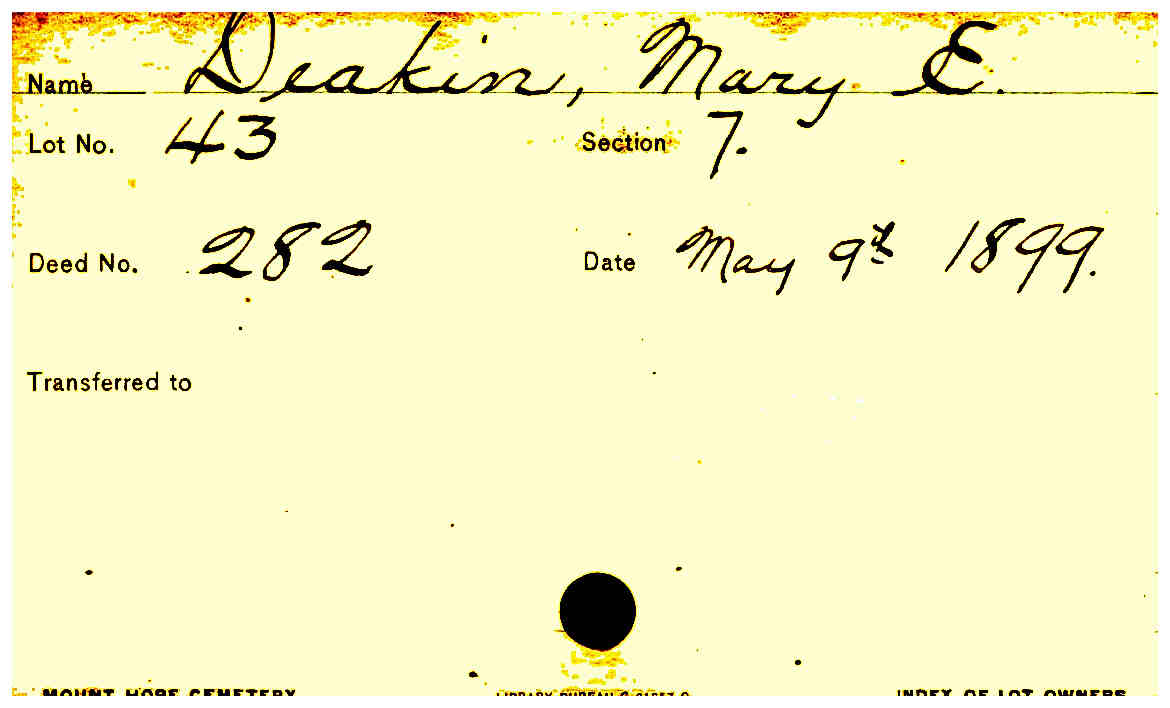 Name Deakin, Mary E.
Lot No. 43 Section 7.
Deed No. 282 Date May 9th 1899.
Transferred to
MOUNT HOPE CEMETERY LIBRARY BUREAU INDEX OF LOT OWNERS